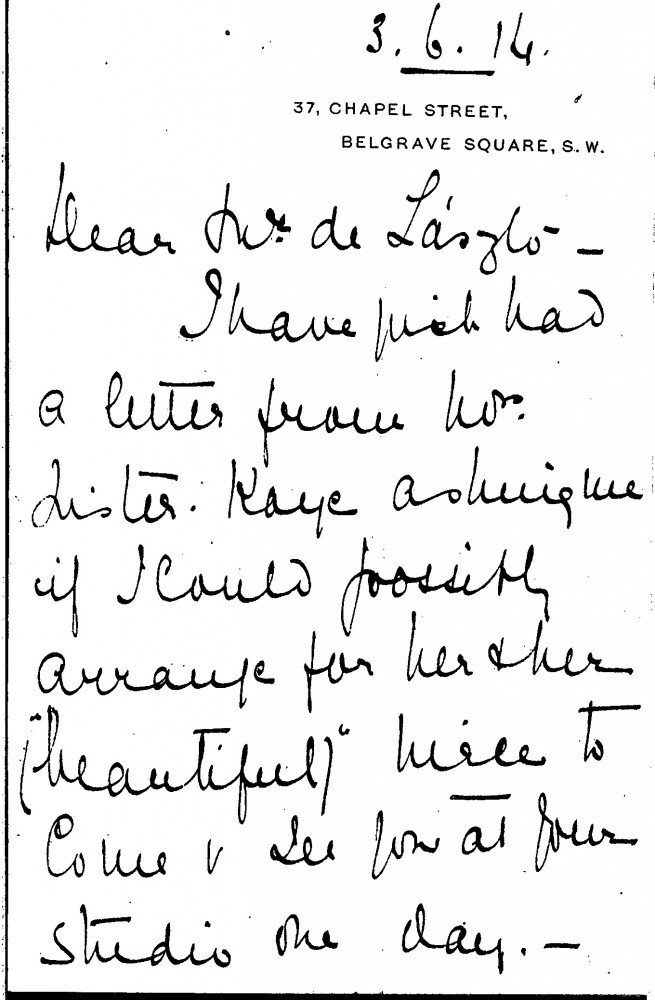 3. 6. 14.
37, CHAPEL STREET,
BELGRAVE SQUARE, S.W.
Dear Mr. de László –
I have just had
a letter from Mrs.
Lister. Kaye asking me
if I could possibly
arrange for her & her
"(beautiful)" niece to
come & see you at your
studio one day. –